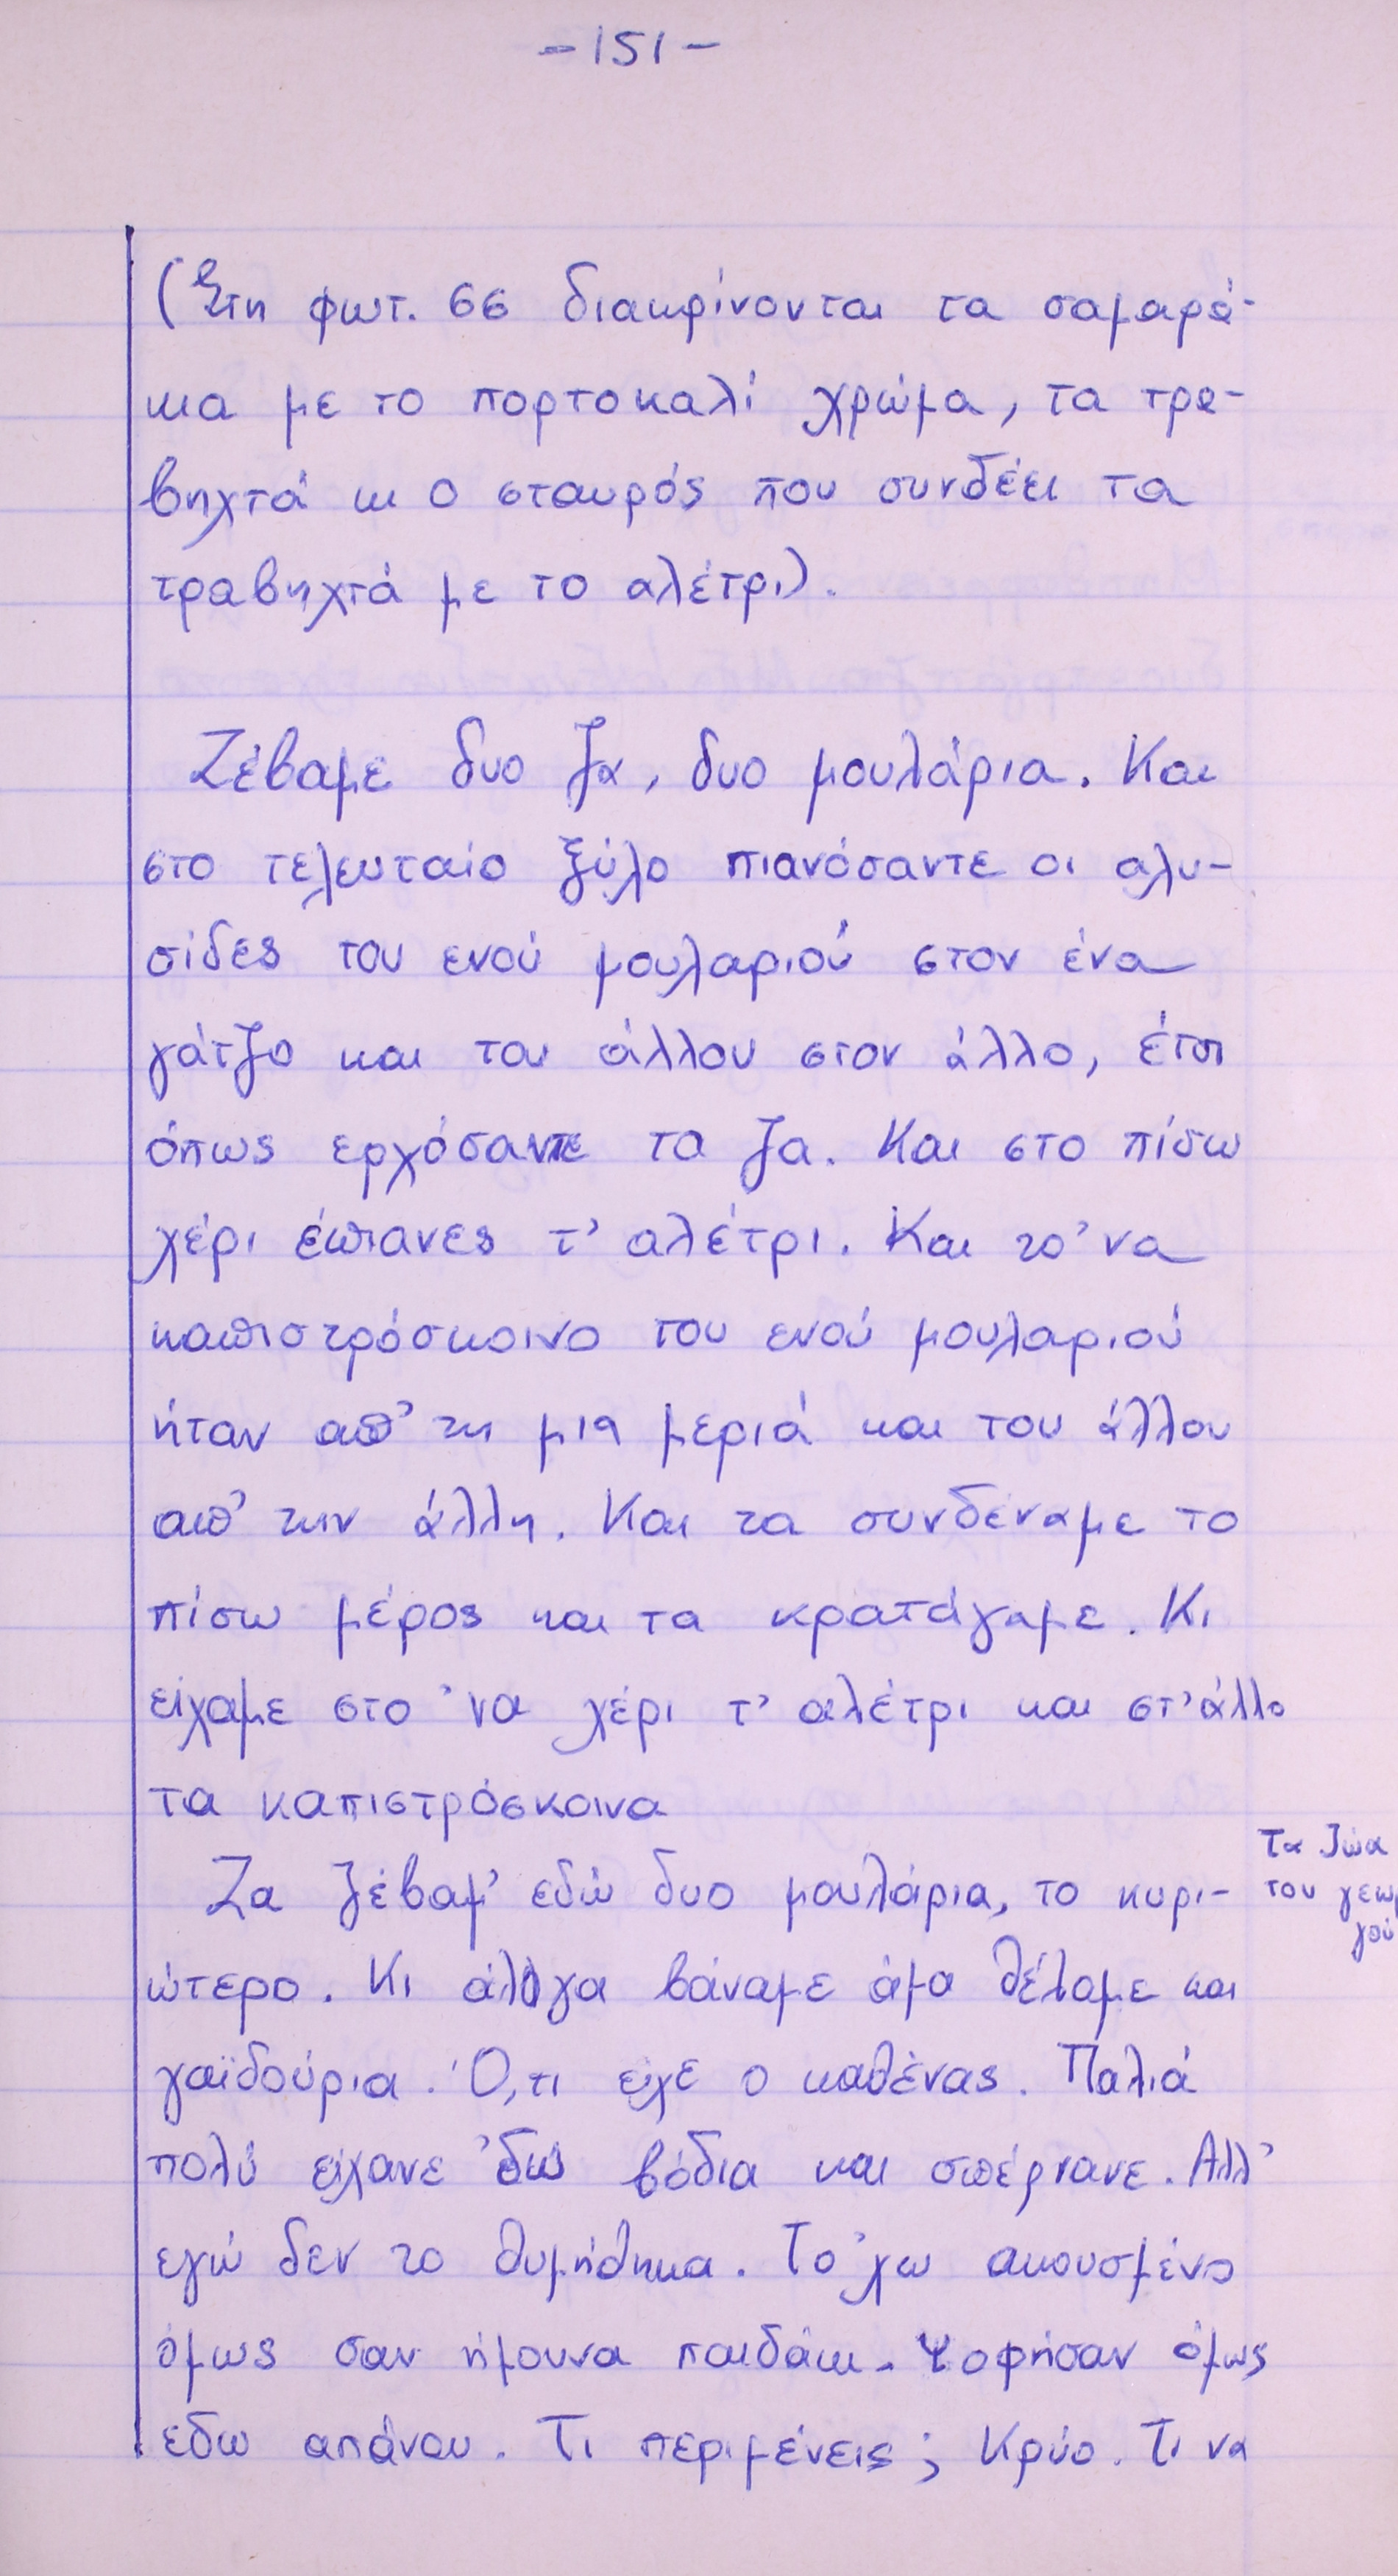 -151-
(Στη φωτ. 66 διακρίνονται τα σαμαρά-
κια με το πορτοκαλί χρώμα, τα τρα-
βηχτά κι ο σταυρός που συνδέει τα
τραβηχτά με το αλέτρι).
Ζέβαμε δυο ζα, δυο μουλάρια. Και
στο τελευταίο ξύλο πιανόσαντε οι αλυ-
σίδες του ενού μουλαριού στον ένα
γάτζο και του άλλου στον άλλο, έτσι
όπως ερχόσαντε τα ζα. Και στο πίσω
χέρι έπιανες τ' αλέτρι. Και το 'να
καπιστρόσκοινο του ενού μουλαριού
ήταν απ' τη μια μεριά και του άλλου
απ' την άλλη. Και τα συνδέναμε το
πίσω μέρος και τα κρατάγαμε. Κι
είχαμε στο 'να χέρι τ' αλέτρι και στ' άλλο
τα καπιστρόσκοινα
Ζα ζέβαμ' εδώ δυο μουλάρια, το κυρι-
ώτερο. Κι άλογα βάναμε άμα θέλαμε και
γαϊδούρια. Ό,τι είχε ο καθένας. Παλιά
πολύ είχανε 'δω βόδια και σπέρνανε. Αλλ'
εγώ δεν το θυμήθηκα. Το 'χω ακουσμένο
όμως σαν ήμουνα παιδάκι. Ψοφήσαν όμως
εδω απάνου. Τι περιμένεις; Κρύο. Τι να
Τα ζώα
του γεωρ
γού